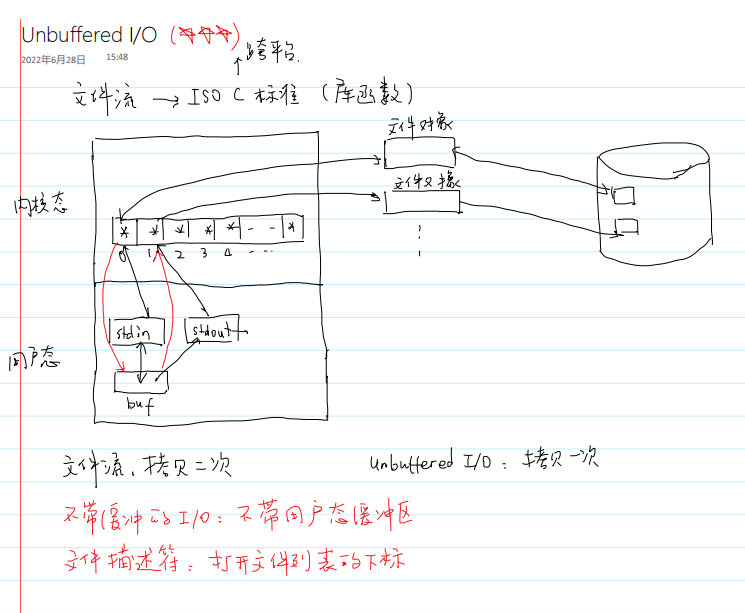 Unbuffered I/O (☆☆☆)
2022年6月28日 15:48
跨平台.
文件流 → ISO C 标准 (库函数)
文件对象
文件对象
内核态
* * * * * - - *
0 1 2 3 4 - - -
stdin stdout
用户态
buf
文件流: 拷贝二次 unbuffered I/O: 拷贝一次
不带缓冲的I/O: 不带用户态缓冲区
文件描述符: 打开文件列表的下标